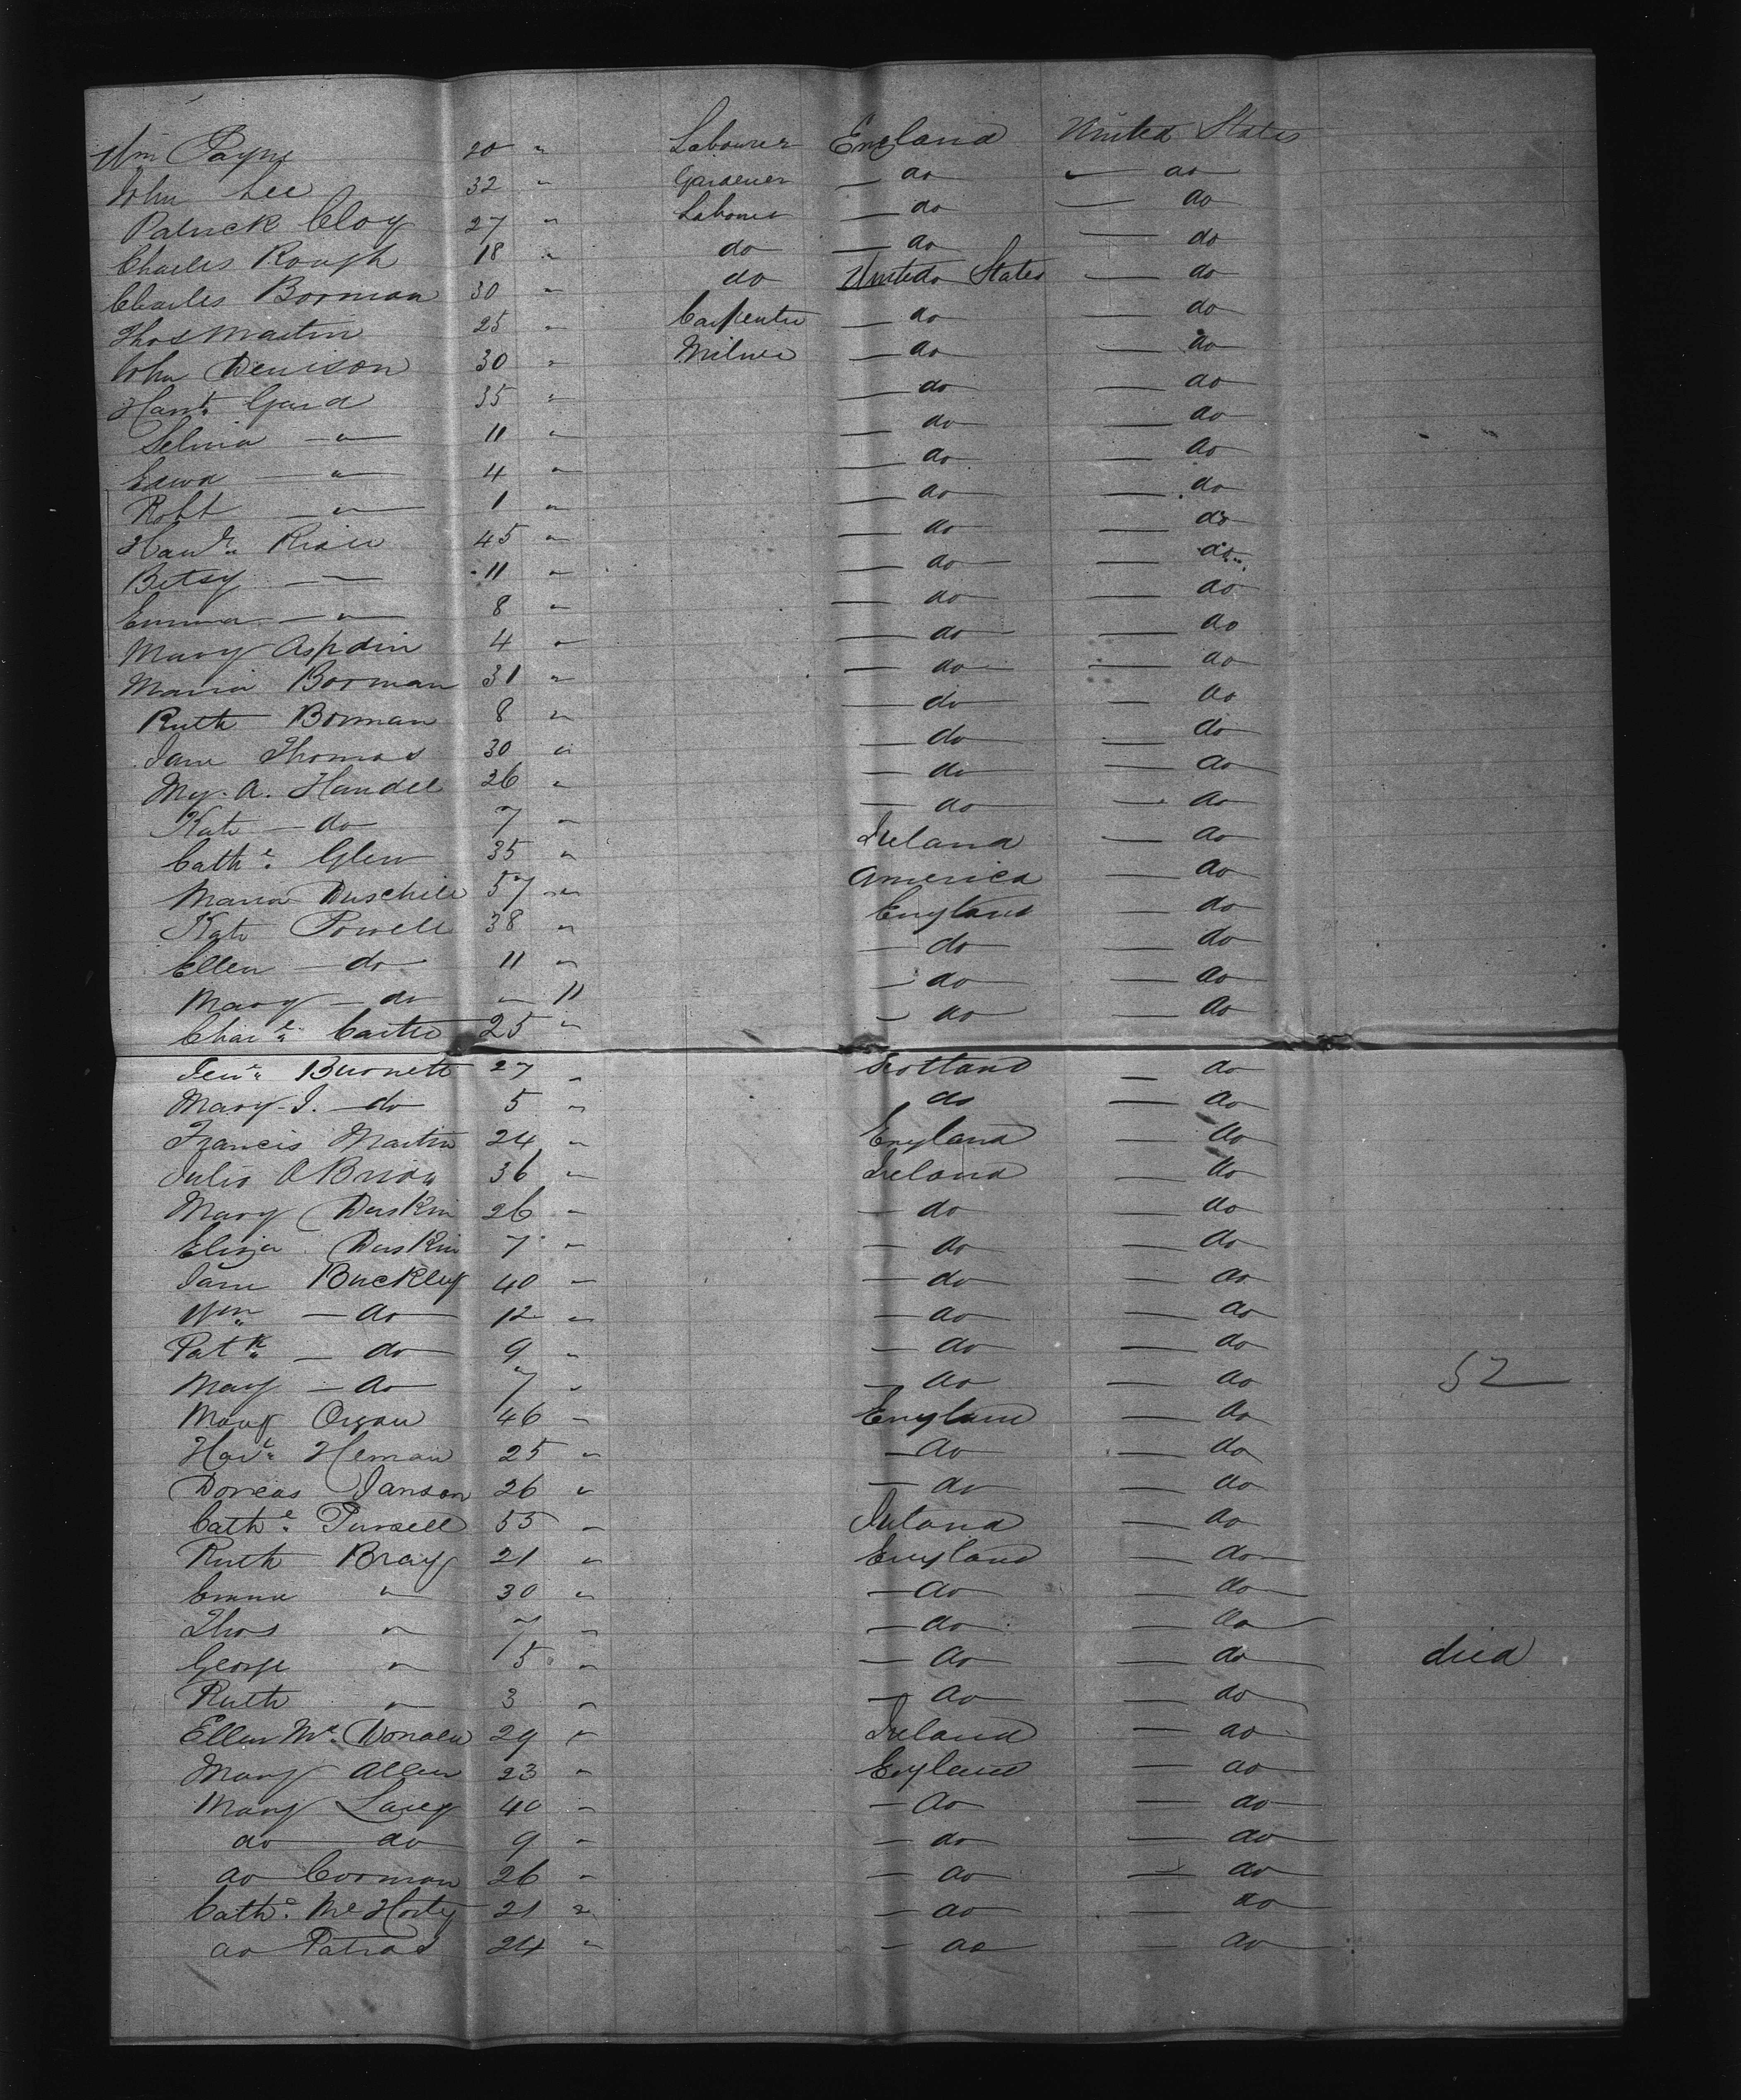 Wm Payne 20 " Labourer England United States
John Lee 32 " Gardener — do — do
Patrick Cloy 27 " Labourer — do — do
Charles Rough 18 " do — do — do
Charles Borman 30 " do United States — do
Thos Martin 25 " Carpenter — do — do
John Denison 30 " Milner — do — do
Hant. Gard 35 " — do — do
Selina — " — 11 " — do — do
Edwd — " — 4 " — do — do
Robt — " — 1 " — do — do
Hanh. 45 " — do — do
Betsy — — 11 " — do — do
Emma — " — 8 " — do — do
Mary Aspdin 4 " — do — do
Maria Borman 31 " — do — do
Ruth Borman 8 " — do — do
Jane Thomas 30 " — do — do
My. A. Handel 26 " — do — do
Kate — do 7 " — do — do
Cathe. Glen 35 " Ireland — do
Maria Duschile 57 " America — do
Kate Powell 38 " England — do
Ellen — do 11 " — do — do
Mary — do " 11 — do — do
Chare. Carter 25 " — do — do
Jene. Burnett 27 " Scotland — do
Mary J. — do 5 " do — do
Francis Martin 24 " England — do
Julia O Brian 36 " Ireland — do
Mary Duskin 26 " — do — do
Eliza Duskin 7 " — do — do
Jane Buckley 40 " — do — do
Wm — do 12 " — do — do
Patk. — do 9 " — do — do
Mary — do 7 " — do — do 52
Mary Organ 46 " England — do
Hart. Heman 25 " — do — do
Dorcas Janson 26 " — do — do
Cathe. Pursell 55 " Ireland — do
Ruth Bray 21 " England — do
Emma " 30 " — do — do
Thos " 7 " — do — do
George " 5 " — do — do died
Ruth " 3 " — do — do
Ellen Mc. Donald 29 " Ireland — do
Mary Allen 23 " England — do
Mary Lacey 40 " — do — do
do do 9 " — do — do
do Corman 26 " — do — do
Cathe. Mc Horty 21 " — do — do
do 24 " — do — do